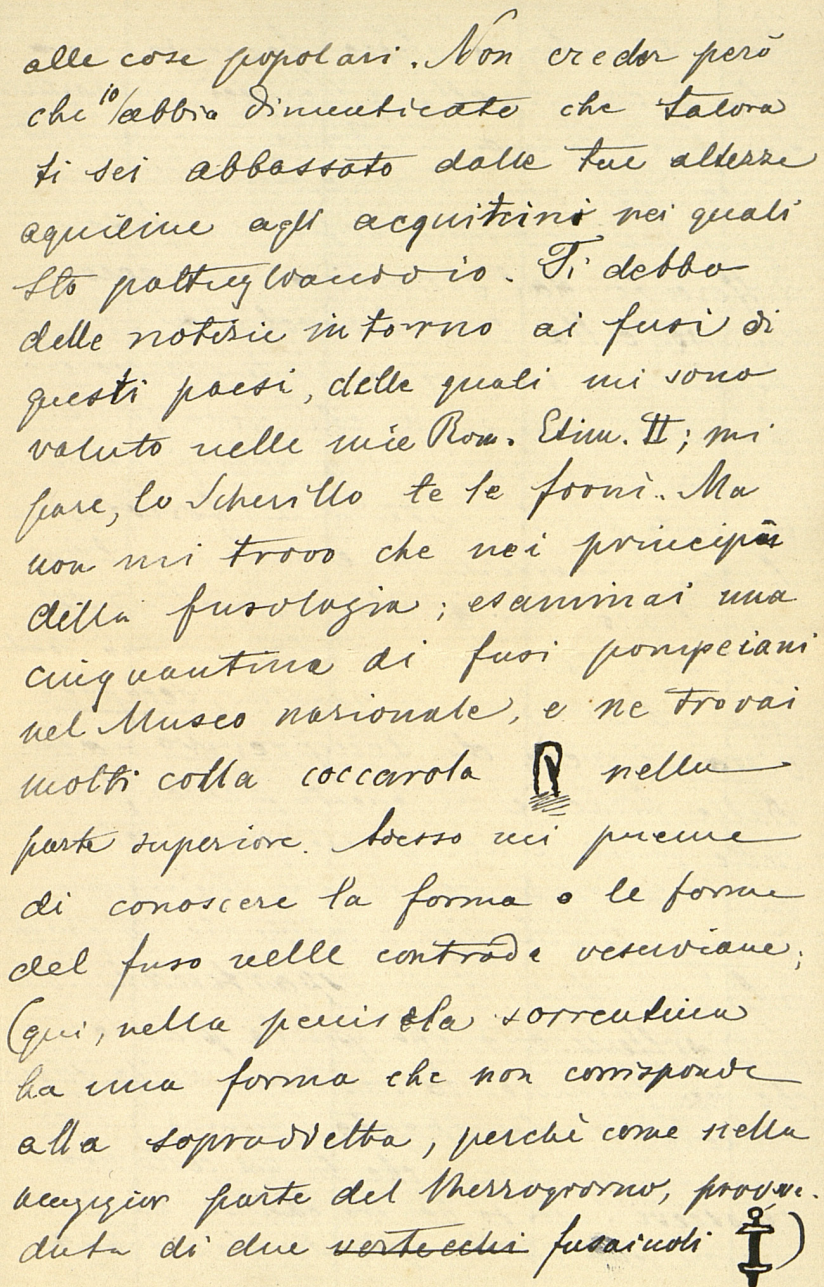 alle cose popolari. Non creder però
che io abbia dimenticato che talora
ti sei abbassato dalle tue altezze
aquiline agli acquitrini nei quali
sto pattugliando io. Ti debbo
delle notizie intorno ai fusi di
questi paesi, delle quali mi sono
valuto nelle mie Rom. Etim. II; mi
pare, lo Scherillo te le fornì. Ma
non mi trovo che nei principii
della fusologia; esaminai una
cinquantina di fusi pompeiani
nel Museo nazionale, e ne trovai
molti colla coccarola nella
parte superiore. Adesso mi preme
di conoscere la forma o le forme
del fuso nelle contrade vesuviane;
(qui, nella penisola sorrentina
ha una forma che non corrisponde
alla sopraddetta, perchè come nella
maggior parte del Mezzogiorno, provve-
duta di due vertecchi fusaiuoli )